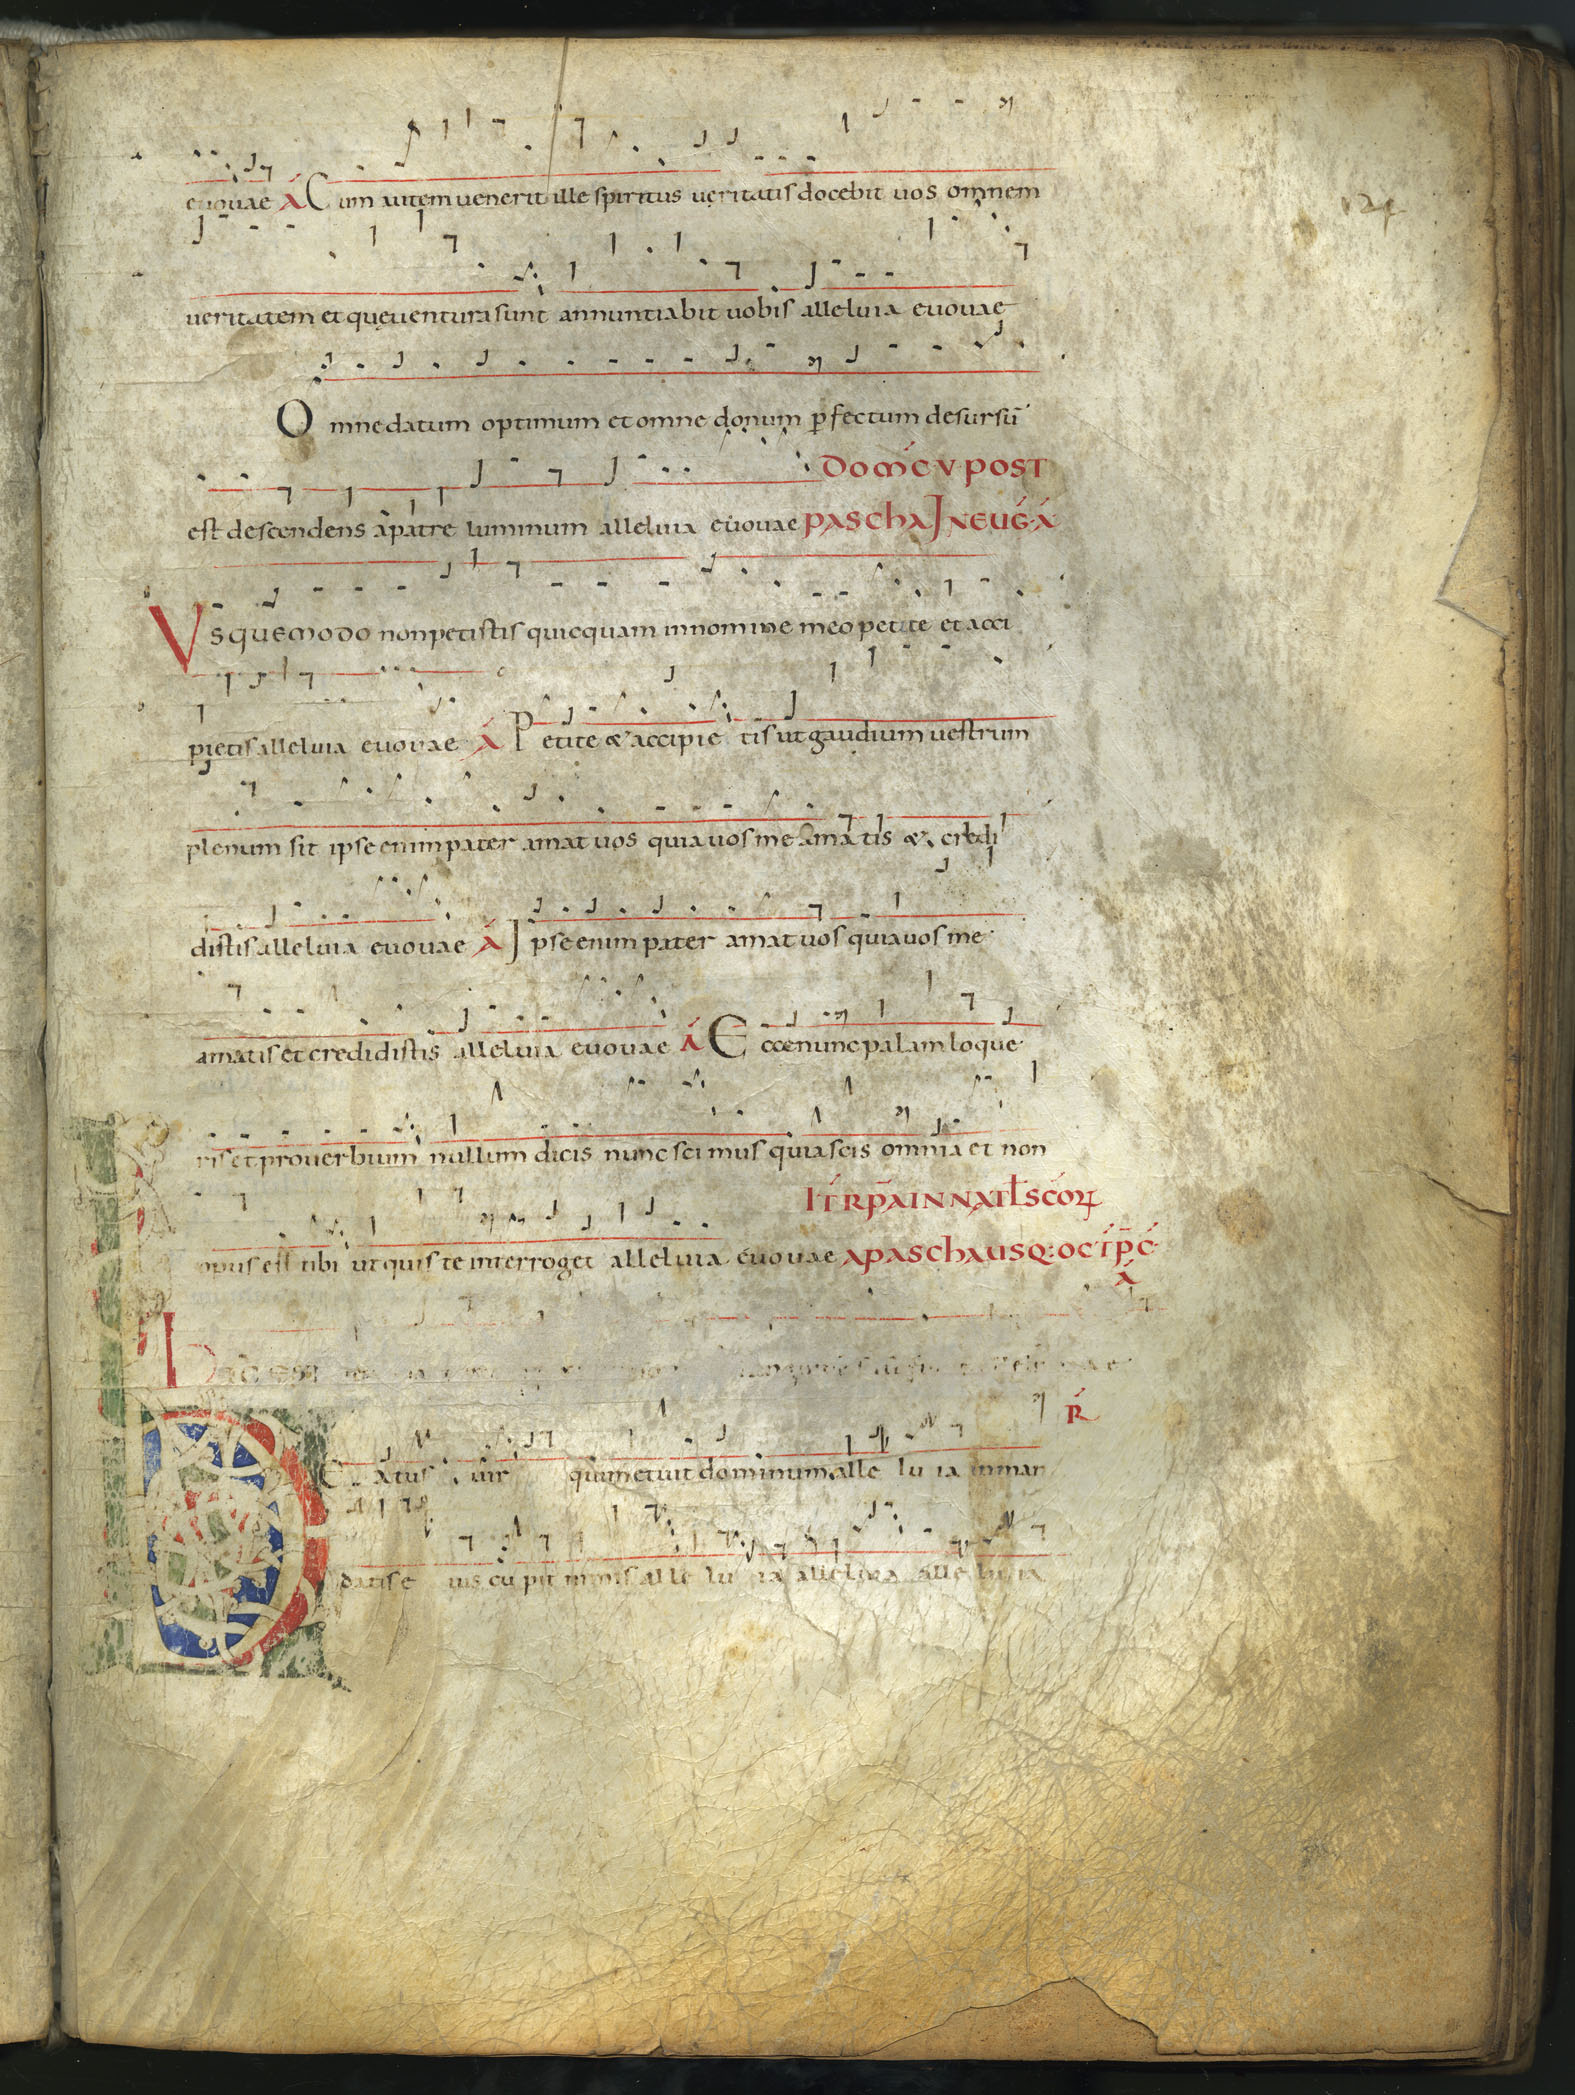 euouae Á Cum autem uenerit ille spiritus ueritatis docebit uos omnem
124
ueritatem et quę uentura sunt annuntiabit uobis alleluia euouae
Omne datum optimum et omne donum ꝑfectum desursū
DOMĆ V POST
est descendens a patre luminum alleluia euouae PASCHA IN EUG̃ Á
VSQUEMODO non petistis quicquam in nomine meo petite et acci
pietis alleluia euouae Á Petite & accipie tis ut gaudium uestrum
plenum sit ipse enim pater amat uos quia uos me ama tis & credi
distis alleluia euouae Á Ipse enim pater amat uos quia uos me
amatis et credidistis alleluia euouae Á Ecce nunc palam loque
ris et prouerbium nullum dicis nunc scimus quia scis omnia et non
IT́ RP̄A IN NATƚ SC̄OꝜ
opus est tibi ut quis te interroget alleluia euouae A PASCHA USQ: OCT́ P̄C
Á
Ŕ
Beatus uir qui metuit dominum alle lu ia in man
datis e ius cupit nimis al le lu ia alleluia alle lu ia